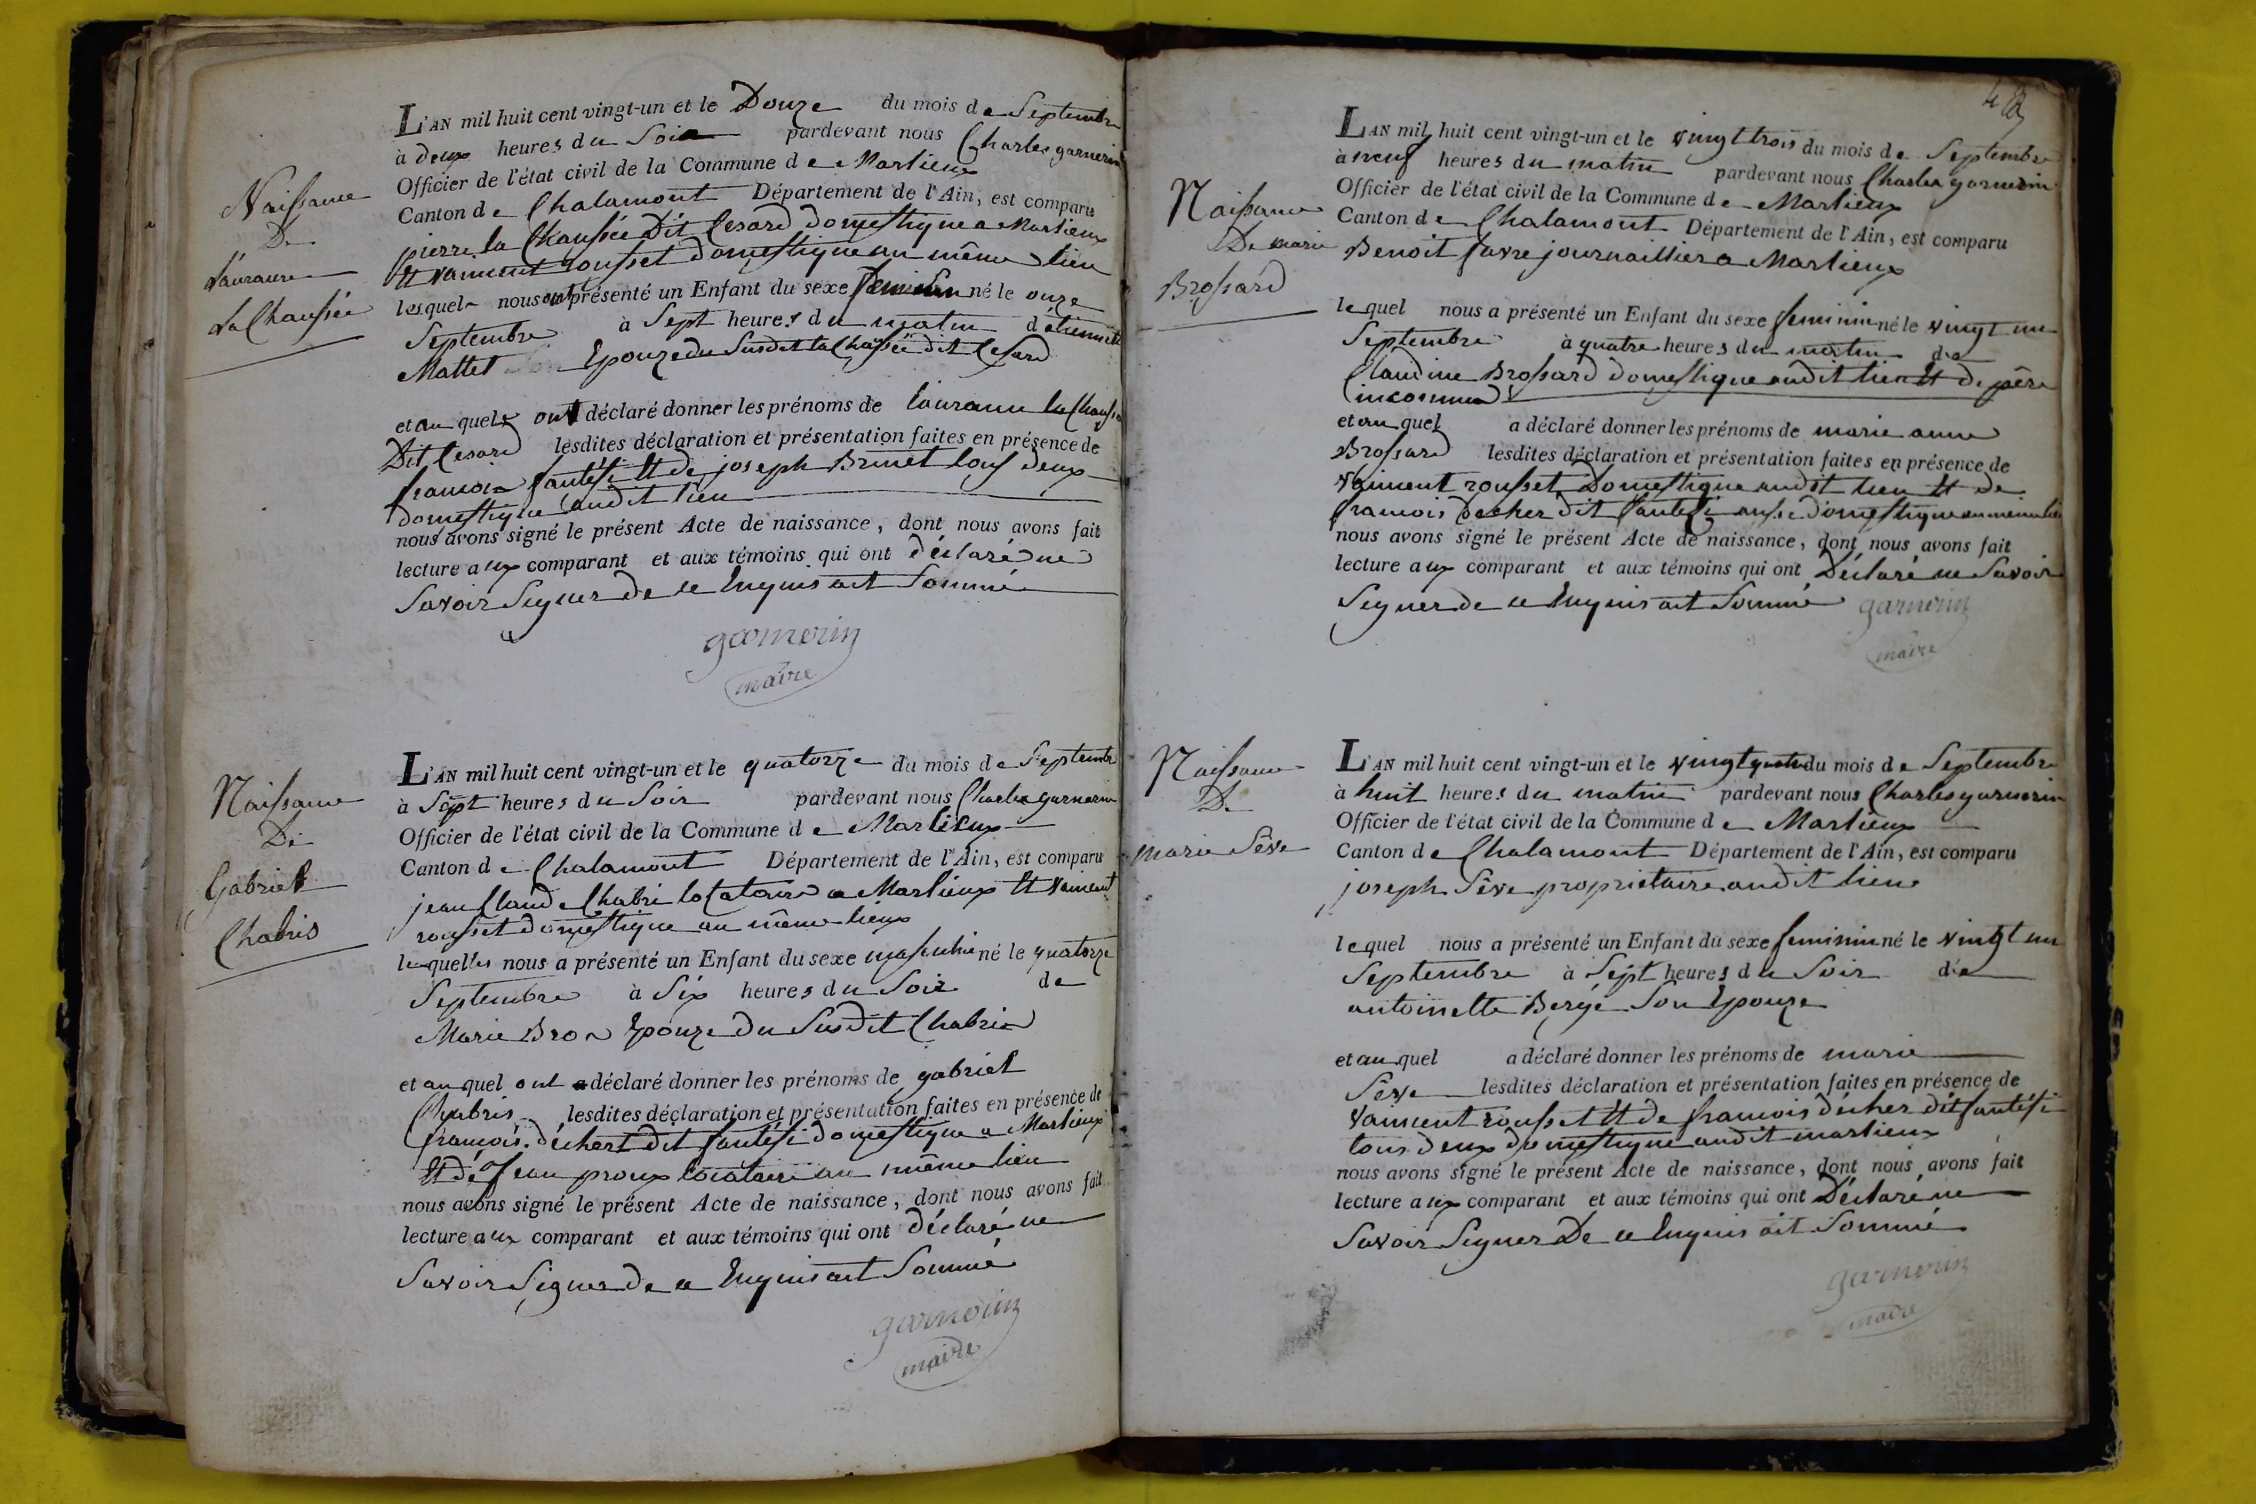 Naissance
De
Lauraure
La Chaussée
L'AN mil huit cent vingt-un et le Douze du mois de Septembre
à deux heures du Soir pardevant nous Charles garnerin
Officier de l'état civil de la Commune de Marlieux
Canton de Chalamont Département de l'Ain, est comparu
pierre la Chaussée Dit Cesard domestique a Marlieux
Et vaincent rousset domestique au même lieu
lesquels nous ont présenté un Enfant du sexe feminin né le onze
Septembre à Sept heures du matin d'étiennette
Mattet Epouze du Susdit la Chaussée dit Cesard
et au quel ont déclaré donner les prénoms de Lauraure la Chaussée
Dit Cesard lesdites déclaration et présentation faites en présence de
francois fantési Et de joseph Brunet tous deux
domestique audit lieu
nous avons signé le présent Acte de naissance, dont nous avons fait
lecture aux comparant et aux témoins qui ont déclaré ne
Savoir Signer de ce Enquis ait Sommé
garnerin
maire
Naissance
De
Gabriel
Chabris
L'AN mil huit cent vingt-un et le quatorze du mois de Septembre
à Sept heures du Soir pardevant nous Charles garnerin
Officier de l'état civil de la Commune de Marlieux
Canton de Chalamont Département de l'Ain, est comparu
jean Claude Chabri locataire a Marlieux Et vaincent
rousset domestique au même lieux
lequelles nous a présenté un Enfant du sexe masculin né le quatorze
Septembre à Six heures du Soir de
Marie Bron Epouze du Susdit Chabris
et au quel ont a déclaré donner les prénoms de gabriel
Chabris lesdites déclaration et présentation faites en présence de
francois déchert dit fantési domestique a Marlieux
Et de jean proux locataire au même lieu
nous avons signé le présent Acte de naissance, dont nous avons fait
lecture aux comparant et aux témoins qui ont déclaré ne
Savoir Signer de ce Enquis ait Sommé
garnerin
maire
Naissance
De marie
Brossard
L'AN mil huit cent vingt-un et le vingt trois du mois de Septembre
à neuf heures du matin pardevant nous Charles garnerin
Officier de l'état civil de la Commune de Marlieux
Canton de Chalamont Département de l'Ain, est comparu
Benoit favre journaillier a Marlieux
lequel nous a présenté un Enfant du sexe feminin né le vingt un
Septembre à quatre heures du matin de
Claudine Brossard domestique audit lieu Et de père
inconnu
et au quel a déclaré donner les prénoms de marie anne
Brossard lesdites déclaration et présentation faites en présence de
vaincent rousset Domestique audit lieu Et de
francois décher dit fantési aussi domestique au meme lieu
nous avons signé le présent Acte de naissance, dont nous avons fait
lecture aux comparant et aux témoins qui ont Déclaré ne Savoir
Signer de ce Enquis ait Sommé garnerin
maire
Naissance
De
marie Sève
L'AN mil huit cent vingt-un et le vingt quatre du mois de Septembre
à huit heures du matin pardevant nous Charles garnerin
Officier de l'état civil de la Commune de Marlieux
Canton de Chalamont Département de l'Ain, est comparu
joseph Sève proprietaire audit lieu
lequel nous a présenté un Enfant du sexe feminin né le vingt un
Septembre à Sept heures du Soir de
antoinette Bergé Son Epouze
et au quel a déclaré donner les prénoms de marie
Sève lesdites déclaration et présentation faites en présence de
vaincent rousset Et de francois décher dit fantési
tous deux domestique audit marlieux
nous avons signé le présent Acte de naissance, dont nous avons fait
lecture aux comparant et aux témoins qui ont Déclaré ne
Savoir Signer De ce Enquis ait Sommé
garnerin
maire